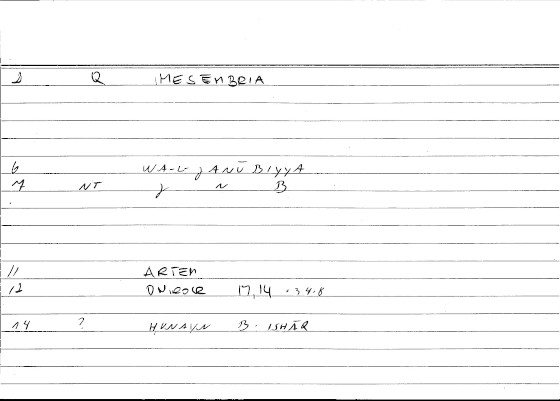 2 Q MESEMBRIA
6 WA-L-JANŪBIYYA
7 NT J N B
11 ARTEM
12 ONIROCR 17,14 · 34.8
14 ? HUNAYN B. ISHĀQ